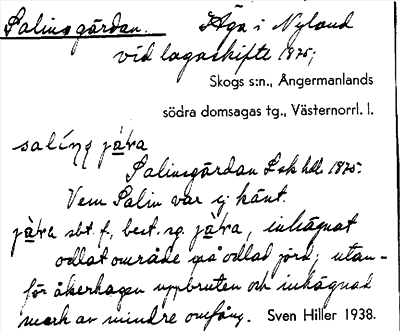 Salinsgårdan. Äga i Nyland
vid lagaskifte 1875;
Skogs s:n., Ångermanlands
södra domsagas tg., Västernorrl. l.
salíŋs jàra
Salinsgårdan Lsk hdl. 1875.
Vem Salin var ej känt.
jàra sbt. f., best. sg. jàra, inhägnat
odlat område på odlad jord; utan-
för åkerhagen uppbruten och inhägnad
mark av mindre omfång. Sven Hiller 1938.